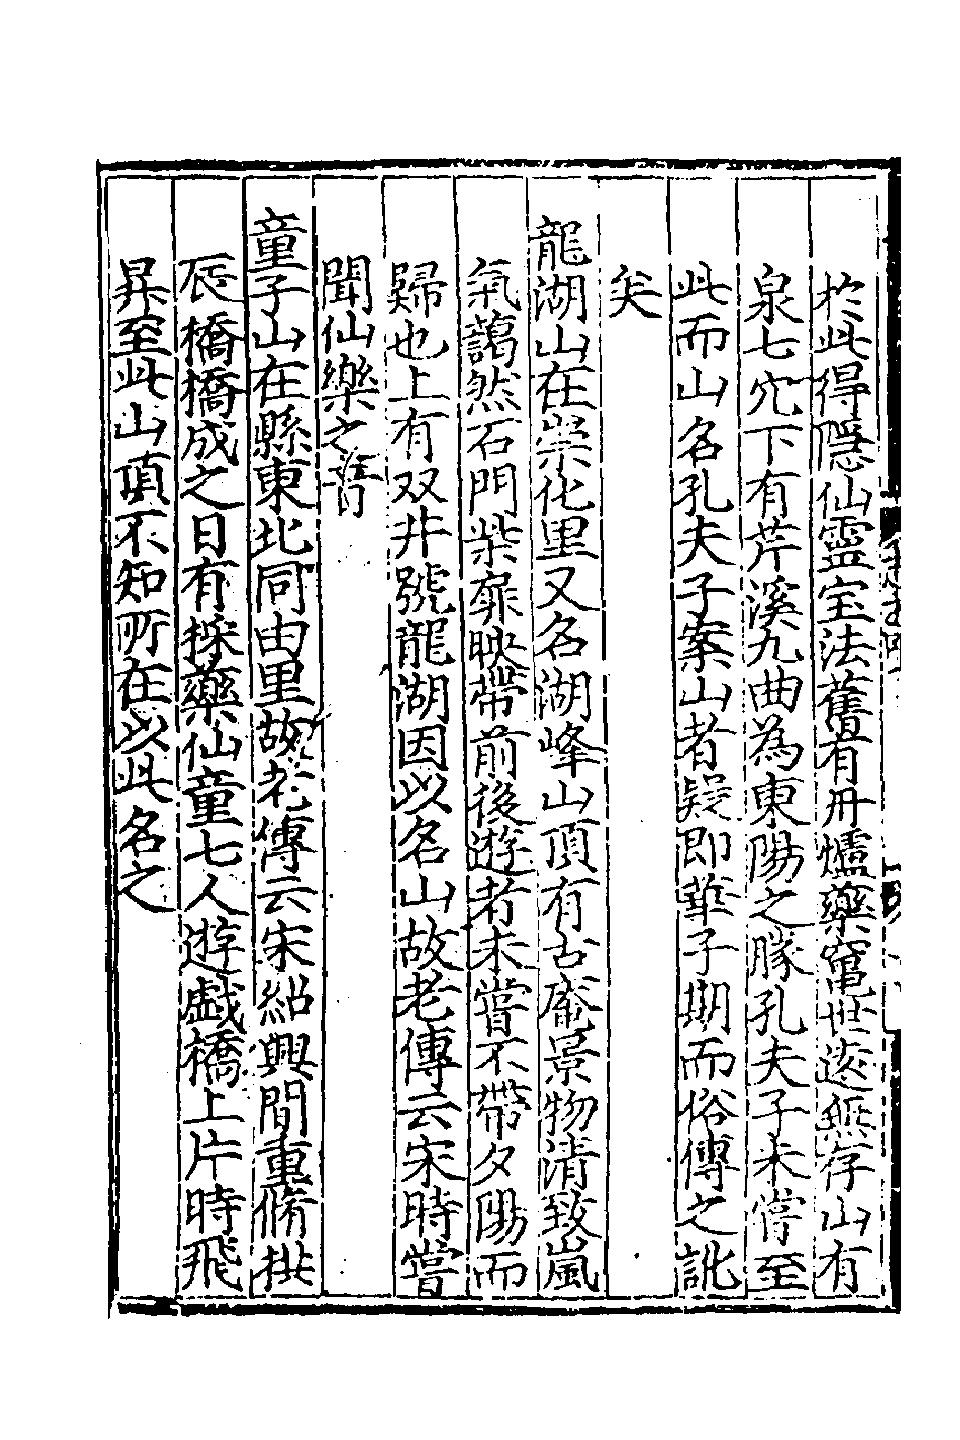 於此得隱仙靈宝法舊有丹爐藥窰世遠無存山有
泉七穴下有芹溪九曲為東陽之勝孔夫子未嘗至
此而山名孔夫子案山者疑即華子期而俗傳之訛
矣
龍湖山在崇化里又名湖峰山頂有古庵景物清致嵐
氣藹然石門柴扉映帶前後遊者未嘗不帶夕陽而
歸也上有双井號龍湖因以名山故老傳云宋時嘗
聞仙樂之音
童子山在縣東北同由里故老傳云宋紹興間重脩拱
辰橋橋成之日有採藥仙童七人遊戲橋上片時飛
昇至此山頂不知所在以此名之